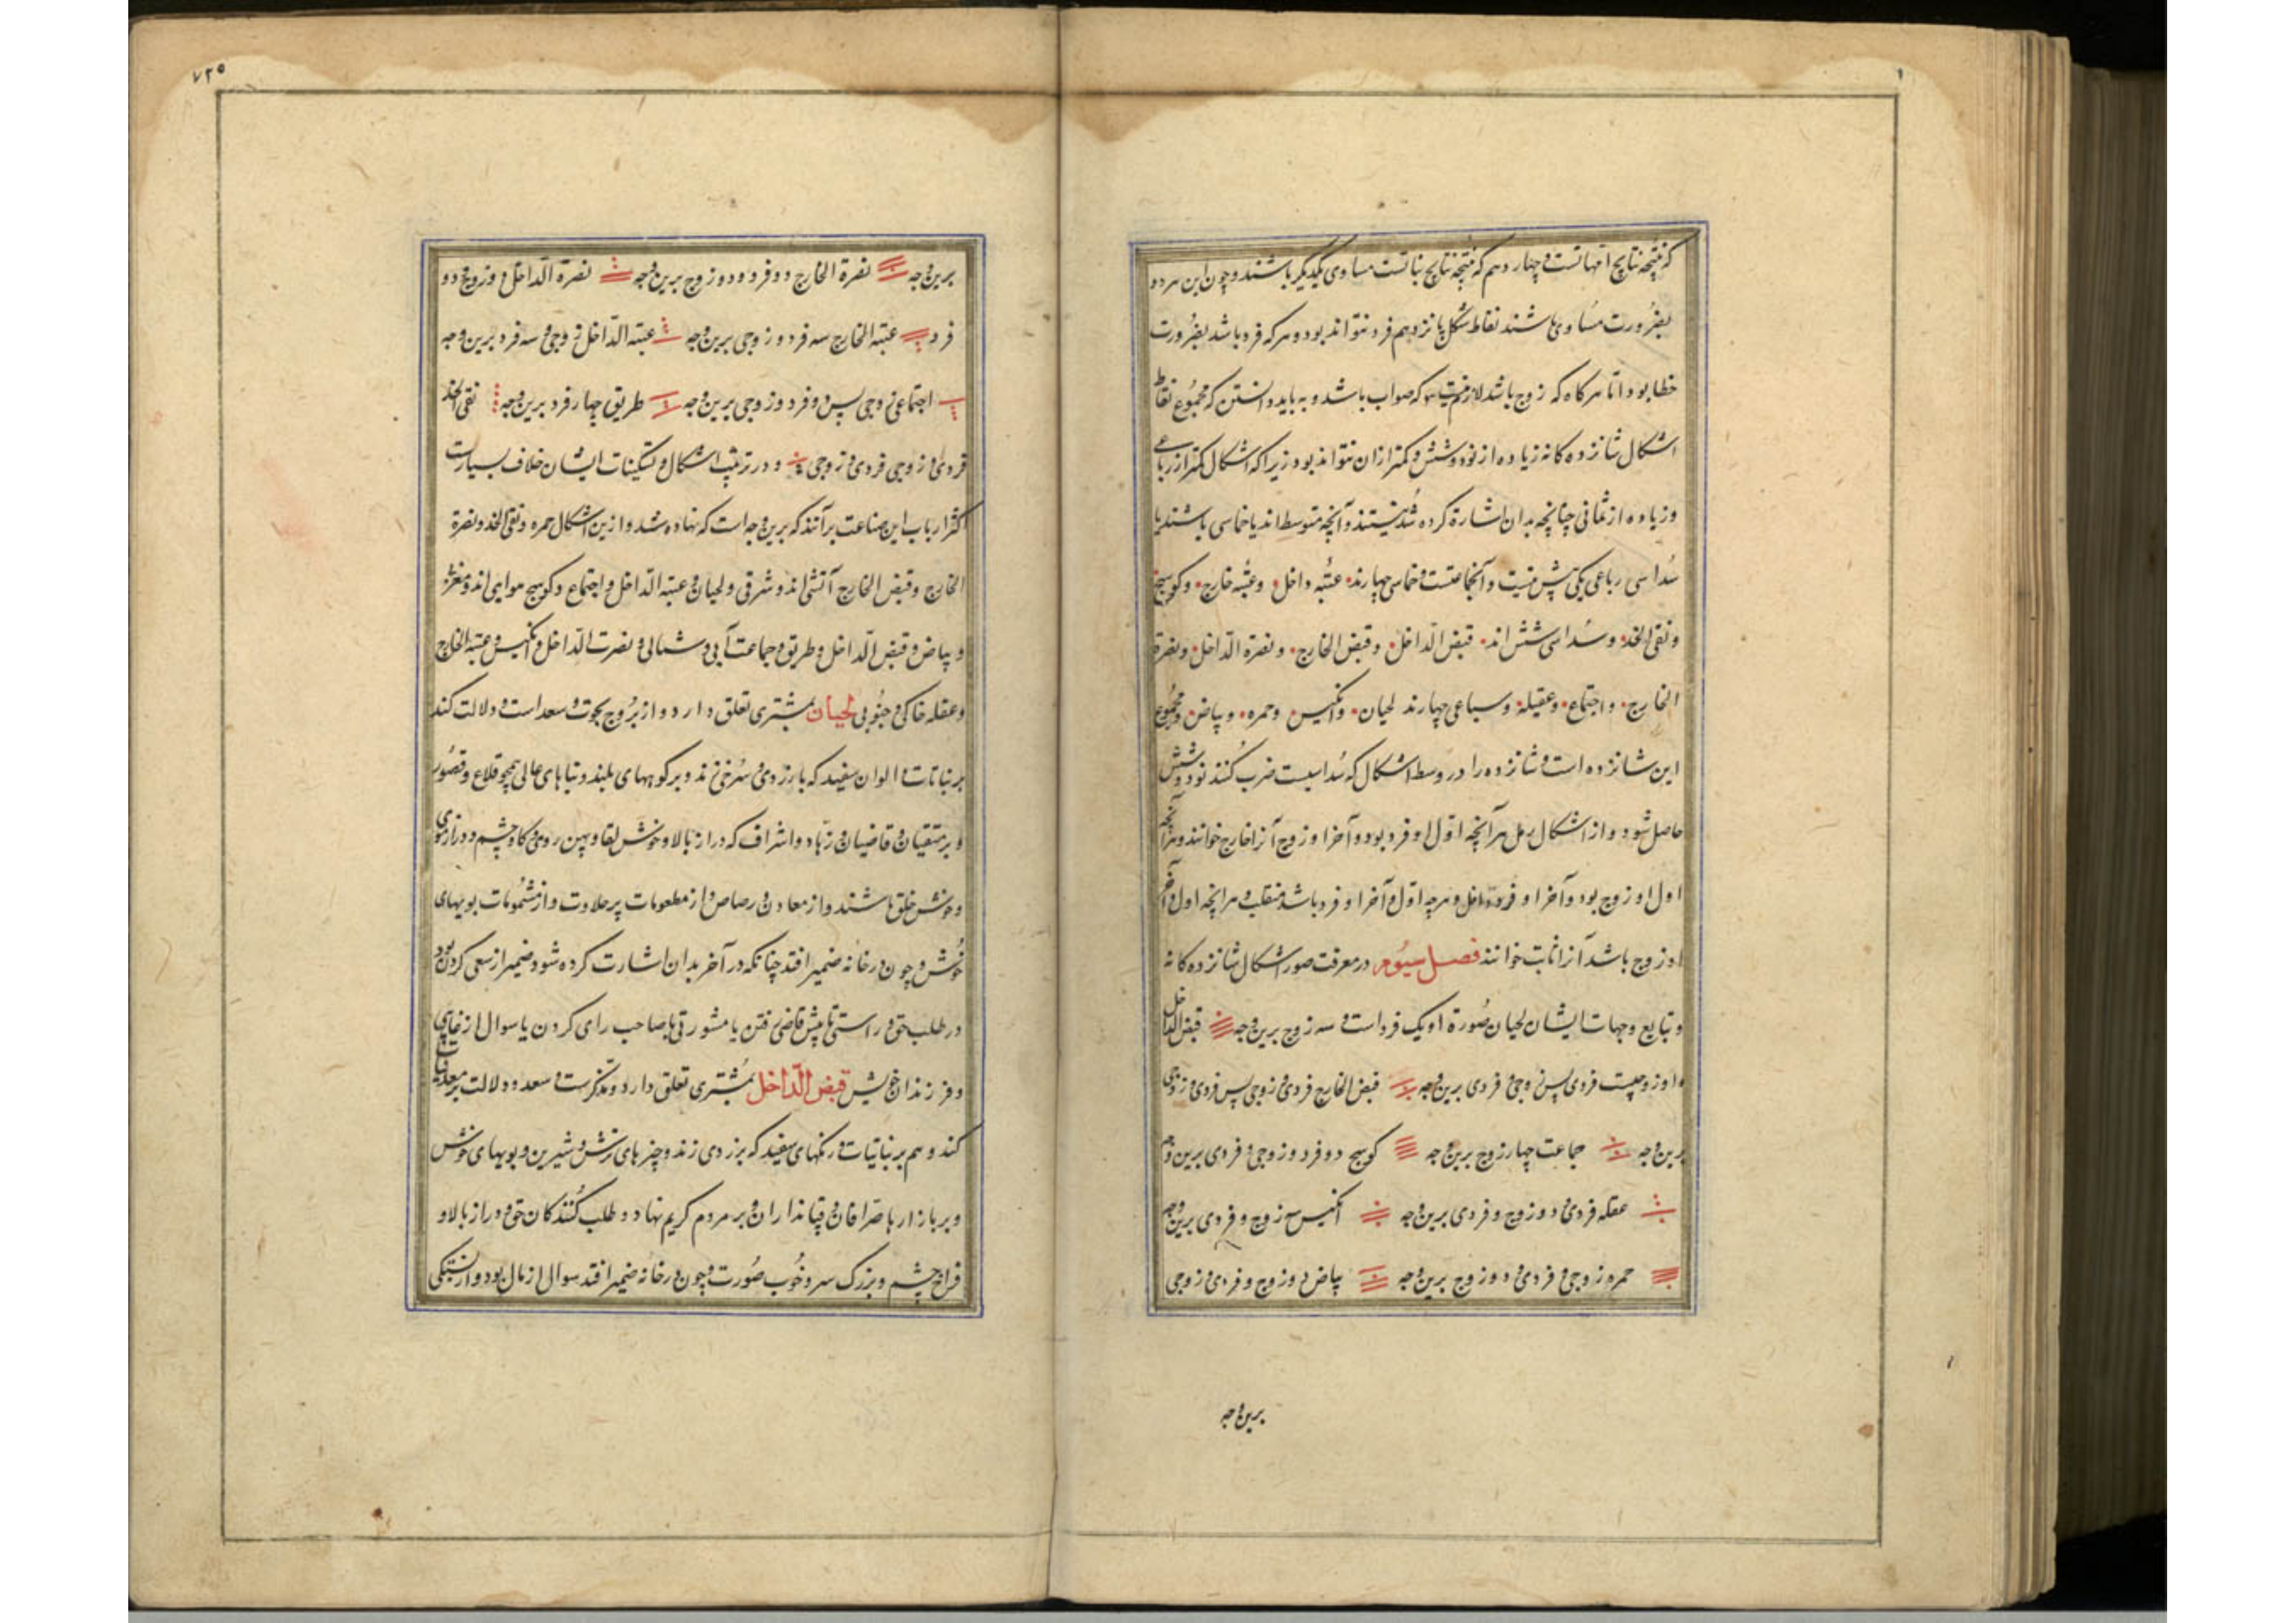 که نتیجه نتایج امهاتست و چهاردهم که نتیجه نتایج بناتست مساوی یکدیگر باشند و چون این هر دو
بضرورت مساوی باشند نقاط شکل پانزدهم فرد نتواند بود و هر که فرد باشد بضرورت
خطا بود اما هر کاه که زوج باشد لازم نیست که صواب باشد و بباید دانستن که مجموع نقاط
اشکال شانزده کانه زیاده از نود و شش و کمتر ازان نتواند بود زیرا که اشکال کمتر از رباعی
و زیاده از ثمانی چنانچه بدان اشارة کرده شد نیستند و آنچه متوسط اند یا خماسی باشند یا
سداسی رباعی یکی بیش نیست و خماسی چهارند عتبه داخل و عتبه خارج و کوسج
و نقی الخد و سداسی شش اند قبض الداخل و قبض الخارج و نصرة الداخل و نصرة
الخارج و اجتماع و عقیله و سباعی چهارند لحیان و انکیس و حمره و بیاض و مجموع
این شانزده است و شانزده را در وسط اشکال که سداسیست ضرب کنند نود و شش
حاصل شود و از اشکال رمل هر آنچه اول او فرد بود و آخر او زوج آنرا خارج خوانند و هر آنچه
اول او زوج بود و آخر او فرد داخل و هر چه اول و آخر او فرد باشد منقلب و هر آنچه اول و آخر
او زوج باشد آنرا ثابت خوانند فصل سیوم در معرفت صور اشکال شانزده کانه
و تبایع وجهات ایشان لحیان صورة او یک فرد است و سه زوج برین وجه قبض الداخل
او زوجیست فردی پس زوجی و فردی برین وجه قبض الخارج فردی و زوجی پس فردی و زوجی
برین وجه جماعت چهار زوج برین وجه کوسج دو فرد و زوجی و فردی برین وجه
عقله فردی و دو زوج و فردی برین وجه انکیس سه زوج و فردی برین وجه
حمره زوجی و فردی و دو زوج برین وجه بیاض دو زوج و فردی و زوجی
برین وجه
۷۲۵
برین وجه نصرة الخارج دو فرد و دو زوج برین وجه نصرة الداخل دو زوج و دو
فرد عتبه الخارج سه فرد و زوجی برین وجه عتبه الداخل زوجی و سه فرد برین وجه
اجتماع زوجی پس دو فرد و زوجی برین وجه طریق چهار فرد برین وجه نقی الخد
فردی و زوجی فردی و زوجی و در ترتیب اشکال و تسکینات ایشان خلاف بسیارست
اکثر ارباب این صناعت برآنند که برین وجه است که نهاده شد و ازین اشکال حمره و نقی الخد و نصرة
الخارج و قبض الخارج آتشی اند و شرقی و لحیان و عتبه الداخل و اجتماع و کوسج هوایی اند و
و بیاض و قبض الداخل و طریق و جماعت آبی و شمالی و نصرت الداخل و انکیس و عتبه الخارج
و عقله خاکی و جنوبی لحیان بمشتری تعلق دارد و از بروج بحوت و سعد است و دلالت کند
بر نباتات و الوان سفید که بازردی و سرخی زند و بر کوههای بلند و بناهای عالی همچو قلاع و قصور
و بر متقیان و قاضیان و زهاد و اشراف که دراز بالا و خوش لقا و پهن روی و کاو چشم و دراز موی
و خوش خلق باشند و از معادن و رصاص و از مطعومات پر حلاوت و از مشمومات بویهای
خوش و چون در خانه ضمیر افتد چنانکه در آخر بدان اشارت کرده شود ضمیر از سعی کردن بود
در طلب حق و راستی تا پیش قاضی رفتن یا مشورتی با صاحب رای کردن یا سوال از غایبی
و فرزندان خویش قبض الداخل بمشتری تعلق دارد و مذکرست و سعد و دلالت بر معدنیات
کند و هم بر نباتیات و رنکهای سفید که بزردی زند و چیزهای ترش و شیرین و بویهای خوش
و بر بازارها صرافان و قباندار ان و بر مردم کریم نهاد و طلب کنندکان حق و دراز بالا و
فراخ چشم و بزرک سر و خوب صورت و چون در خانه ضمیر افتد سوال از مال بود و